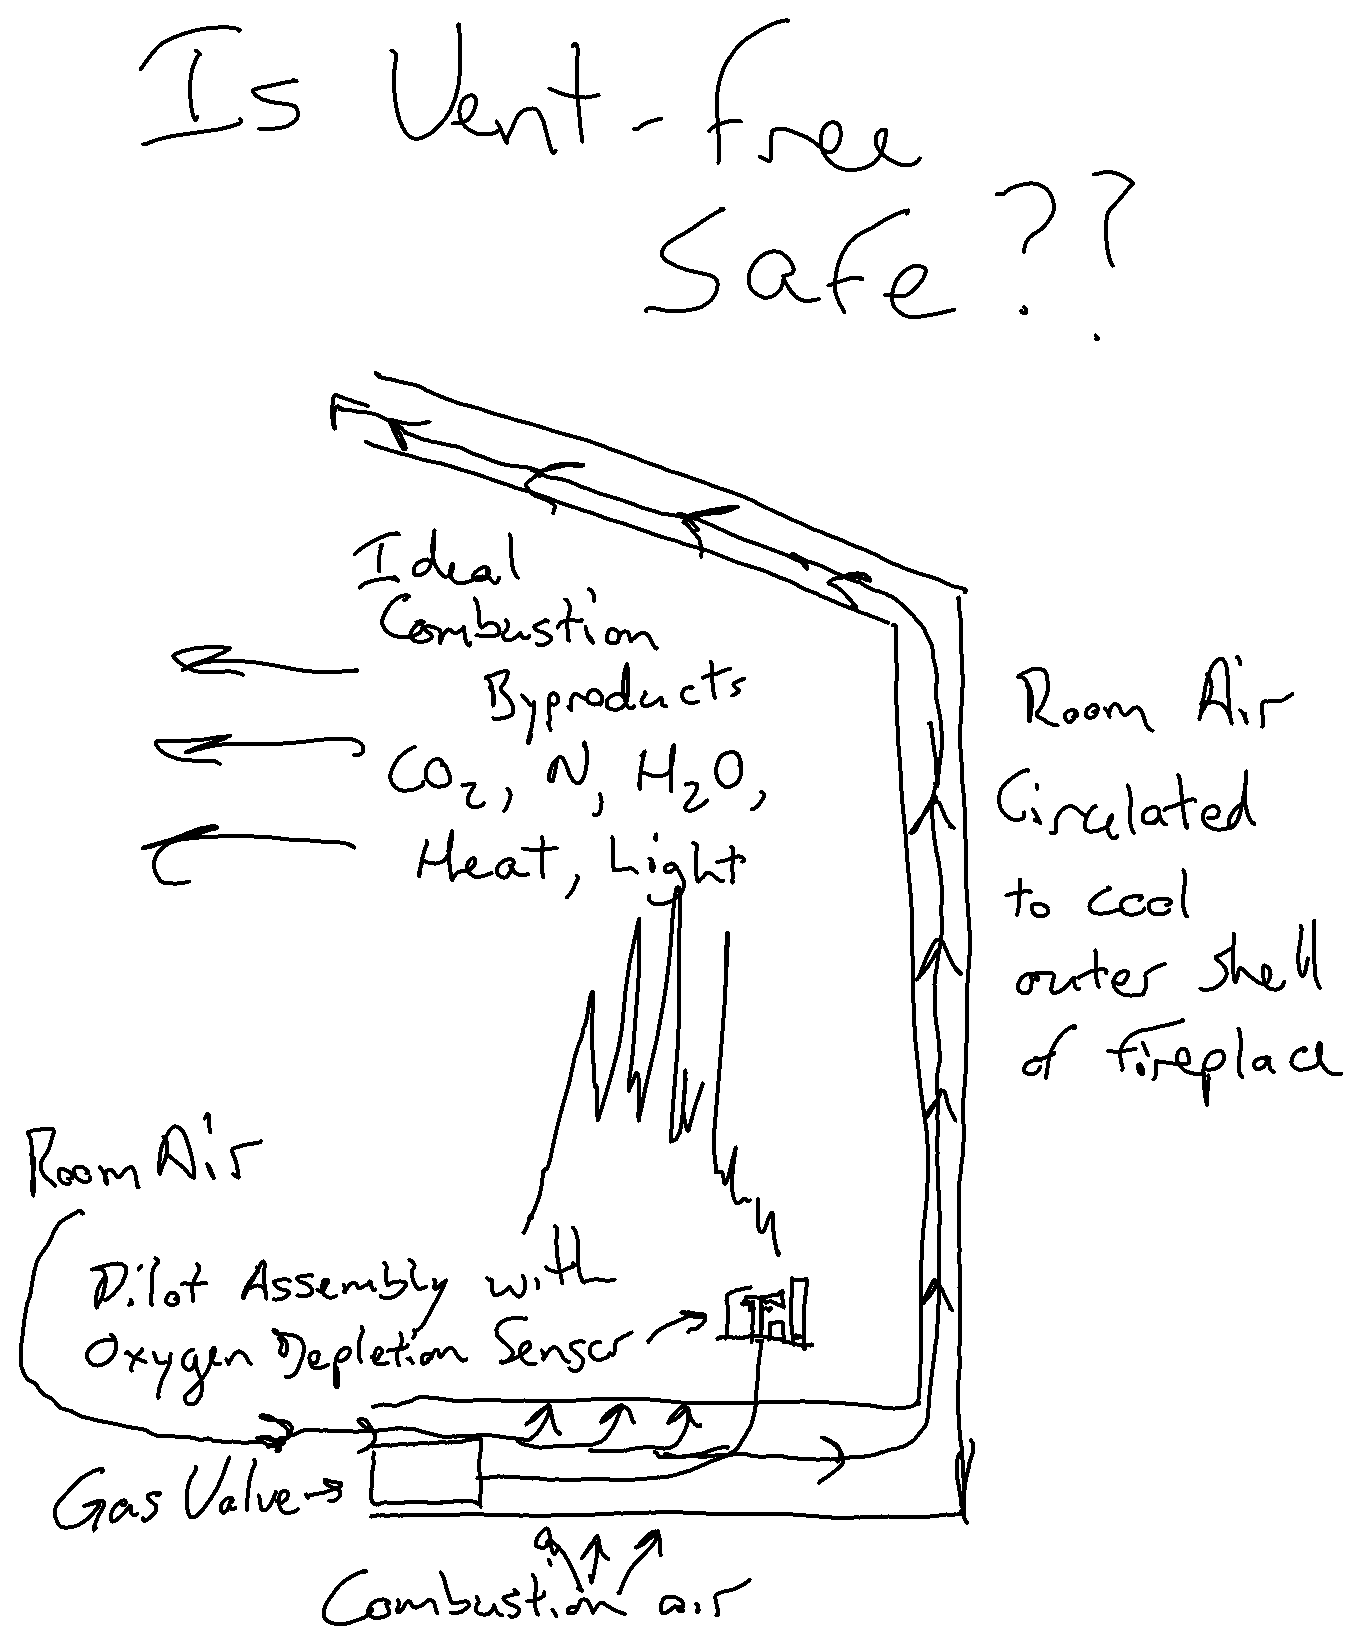 Is Vent-Free
Safe??
Ideal
Combustion
Byproducts
CO2, N, H2O,
Heat, Light
Room Air
Circulated
to cool
outer shell
of fireplace
Room Air
Pilot Assembly with
Oxygen Depletion Sensor
Gas Valve
Combustion air